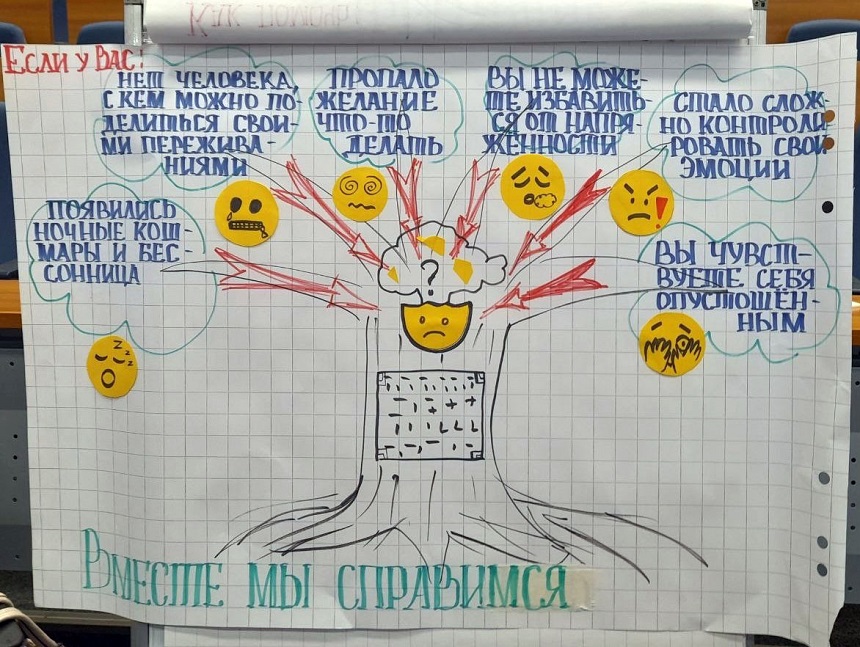 Как помочь?
Если у Вас:
Нет человека,
с кем можно по-
делиться свои-
ми пережива-
ниями
Пропало
желание
что-то
делать
Вы не може-
те избавить-
ся от напря-
жённости
Стало слож-
но контроли-
ровать свои
эмоции
Появились
ночные кош-
мары и бес-
сонница
Вы чувст-
вуете себя
опустошён-
ным
?
z z z
Вместе мы справимся